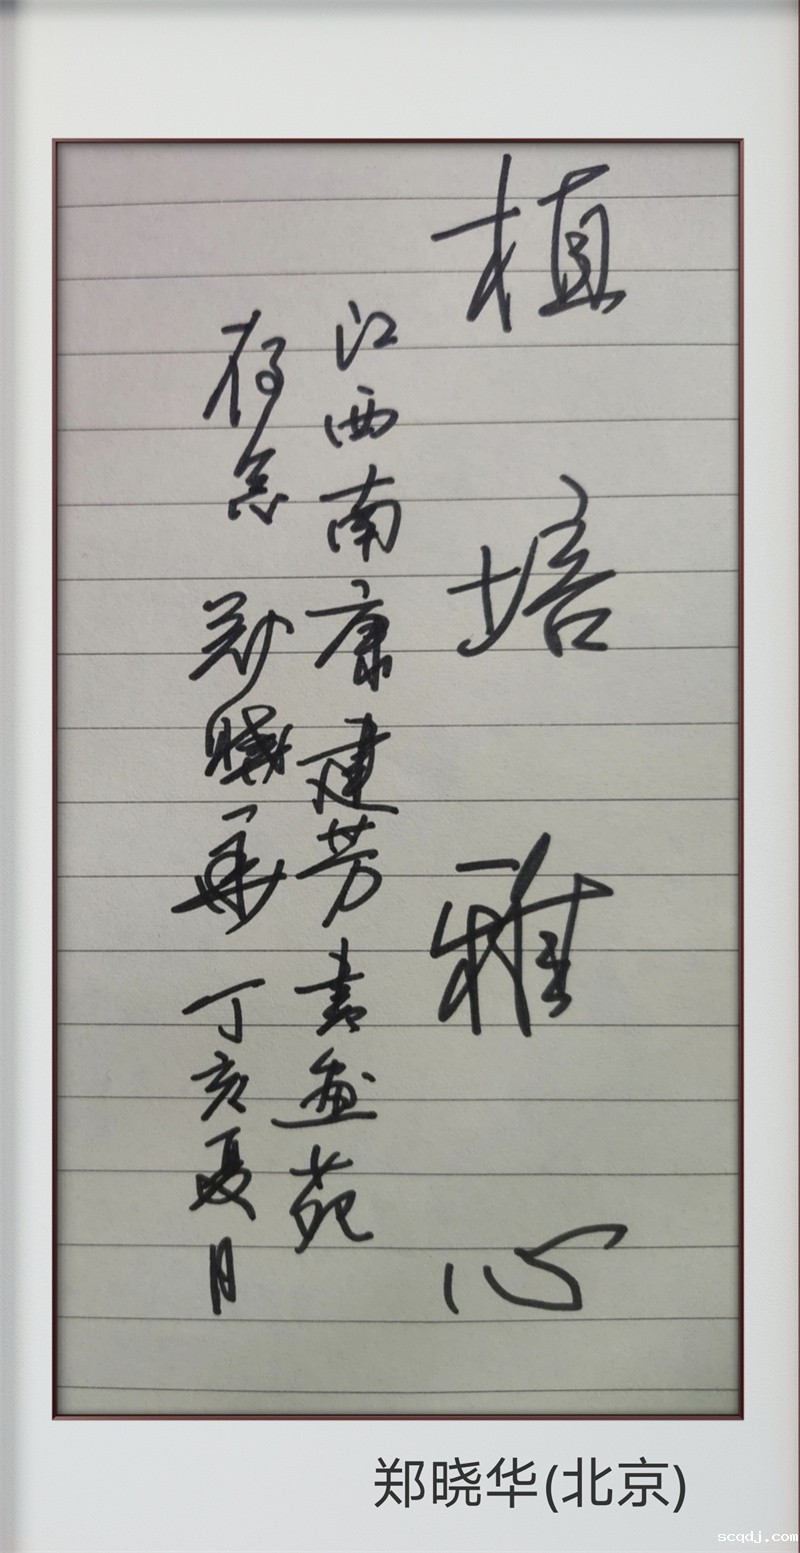 植培雅心
江西南康建芳书画苑
存念 郑晓华 丁亥夏月
郑晓华(北京)
scqdj.com